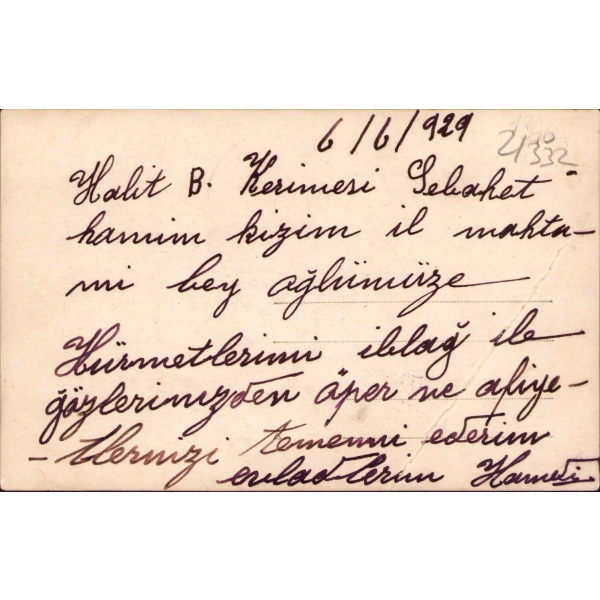 6/6/929
21332
Halit B. Kerimesi Sebahet
hanım kizim il mahta-
mi bey oğlümüze
Hürmetlerimi iblağ ile
gözlerinizden öper ve afiye-
- tlerinizi temenni ederim
evladlerim Hamdi